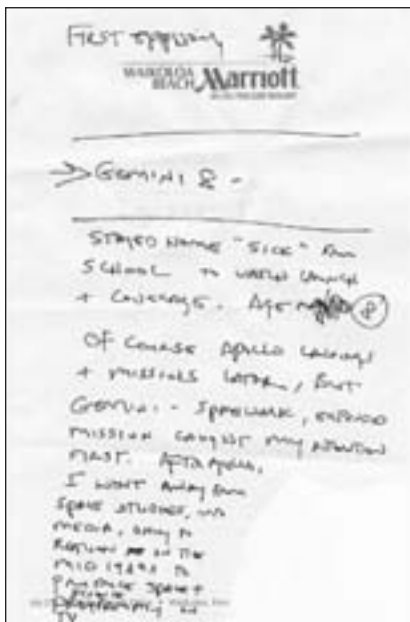 FIRST
WAIKOLOA
BEACH Marriott
→ GEMINI 8 -
STAYED HOME "SICK" FROM
SCHOOL TO WATCH LAUNCH
+ COVERAGE. AGE 8
OF COURSE APOLLO LANDINGS
+ MISSIONS LATER, BUT
GEMINI - SPACEWALK, EXTENDED
MISSION CAUGHT MY ATTENTION
FIRST. AFTER APOLLO,
I WENT AWAY FROM
SPACE STUDIES, INTO
MEDIA, ONLY TO
RETURN IN THE
MID 1990s TO
SPACE +
ON
TV